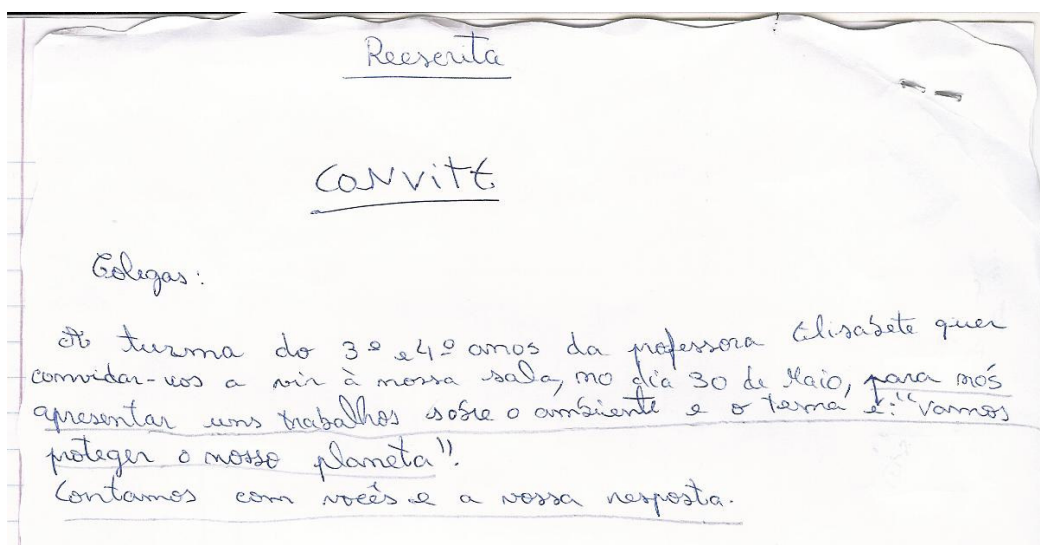 Reescrita
CONVITE
Colegas:
A turma do 3º e 4º anos da professora Elisabete quer
convidar-vos a vir à nossa sala, no dia 30 de Maio, para nós
apresentar uns trabalhos sobre o ambiente e o tema é: "Vamos
proteger o nosso planeta".
Contamos com vocês e a vossa resposta.